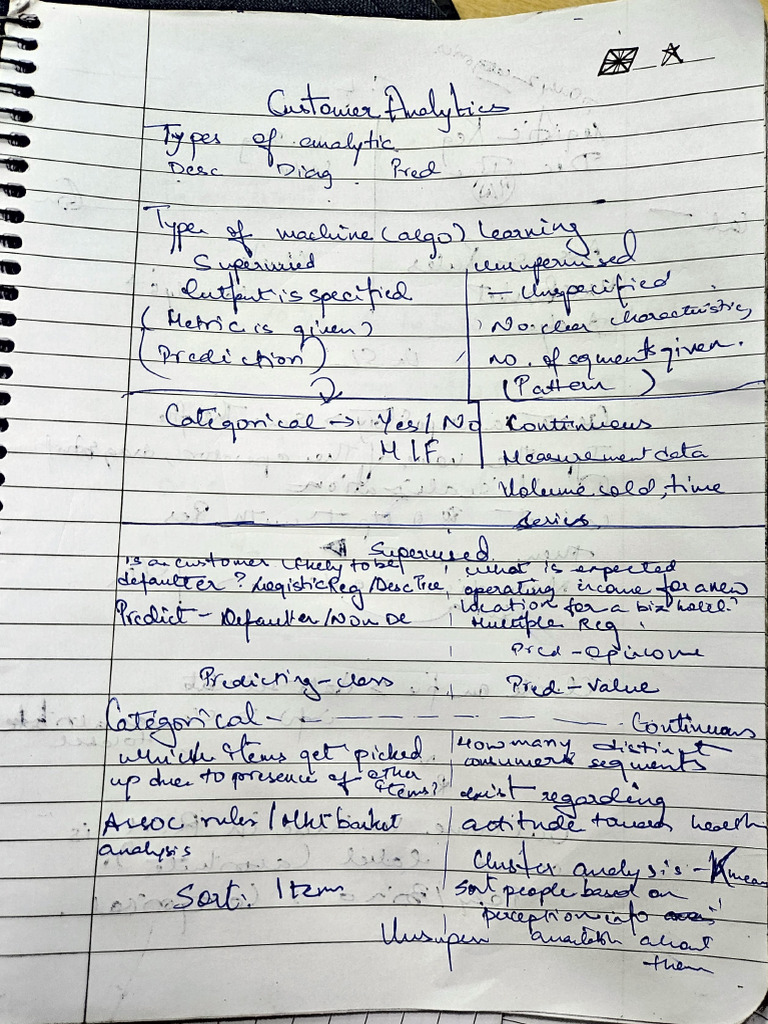 Customer Analytics
Types of analytic
Desc Diag Pred
Types of machine (algo) Learning
Supervised unsupervised
Output is specified - Unspecified
(Metric is given) No clear characteristics,
(Prediction) no. of segments given.
(Pattern)
Categorical → Yes/No Continuous
M/F. Measurement data
Volume sold, time
series
Supervised
is a customer likely to be what is expected
defaulter? Logistic Reg/Desc Tree operating income for a new
location for a biz hotel?
Predict - Defaulter/Non De Multiple Reg
Pred - op income
Predicting - class Pred - value
Categorical - - - - - - - Continuous
which items get picked How many distinct
up due to presence of other consumer segments
items? exist regarding
Assoc rules / Mkt basket attitude towards health
analysis
Cluster analysis - K mean
Sort: Items Sort people based on
perception info
Unsuper available about
them